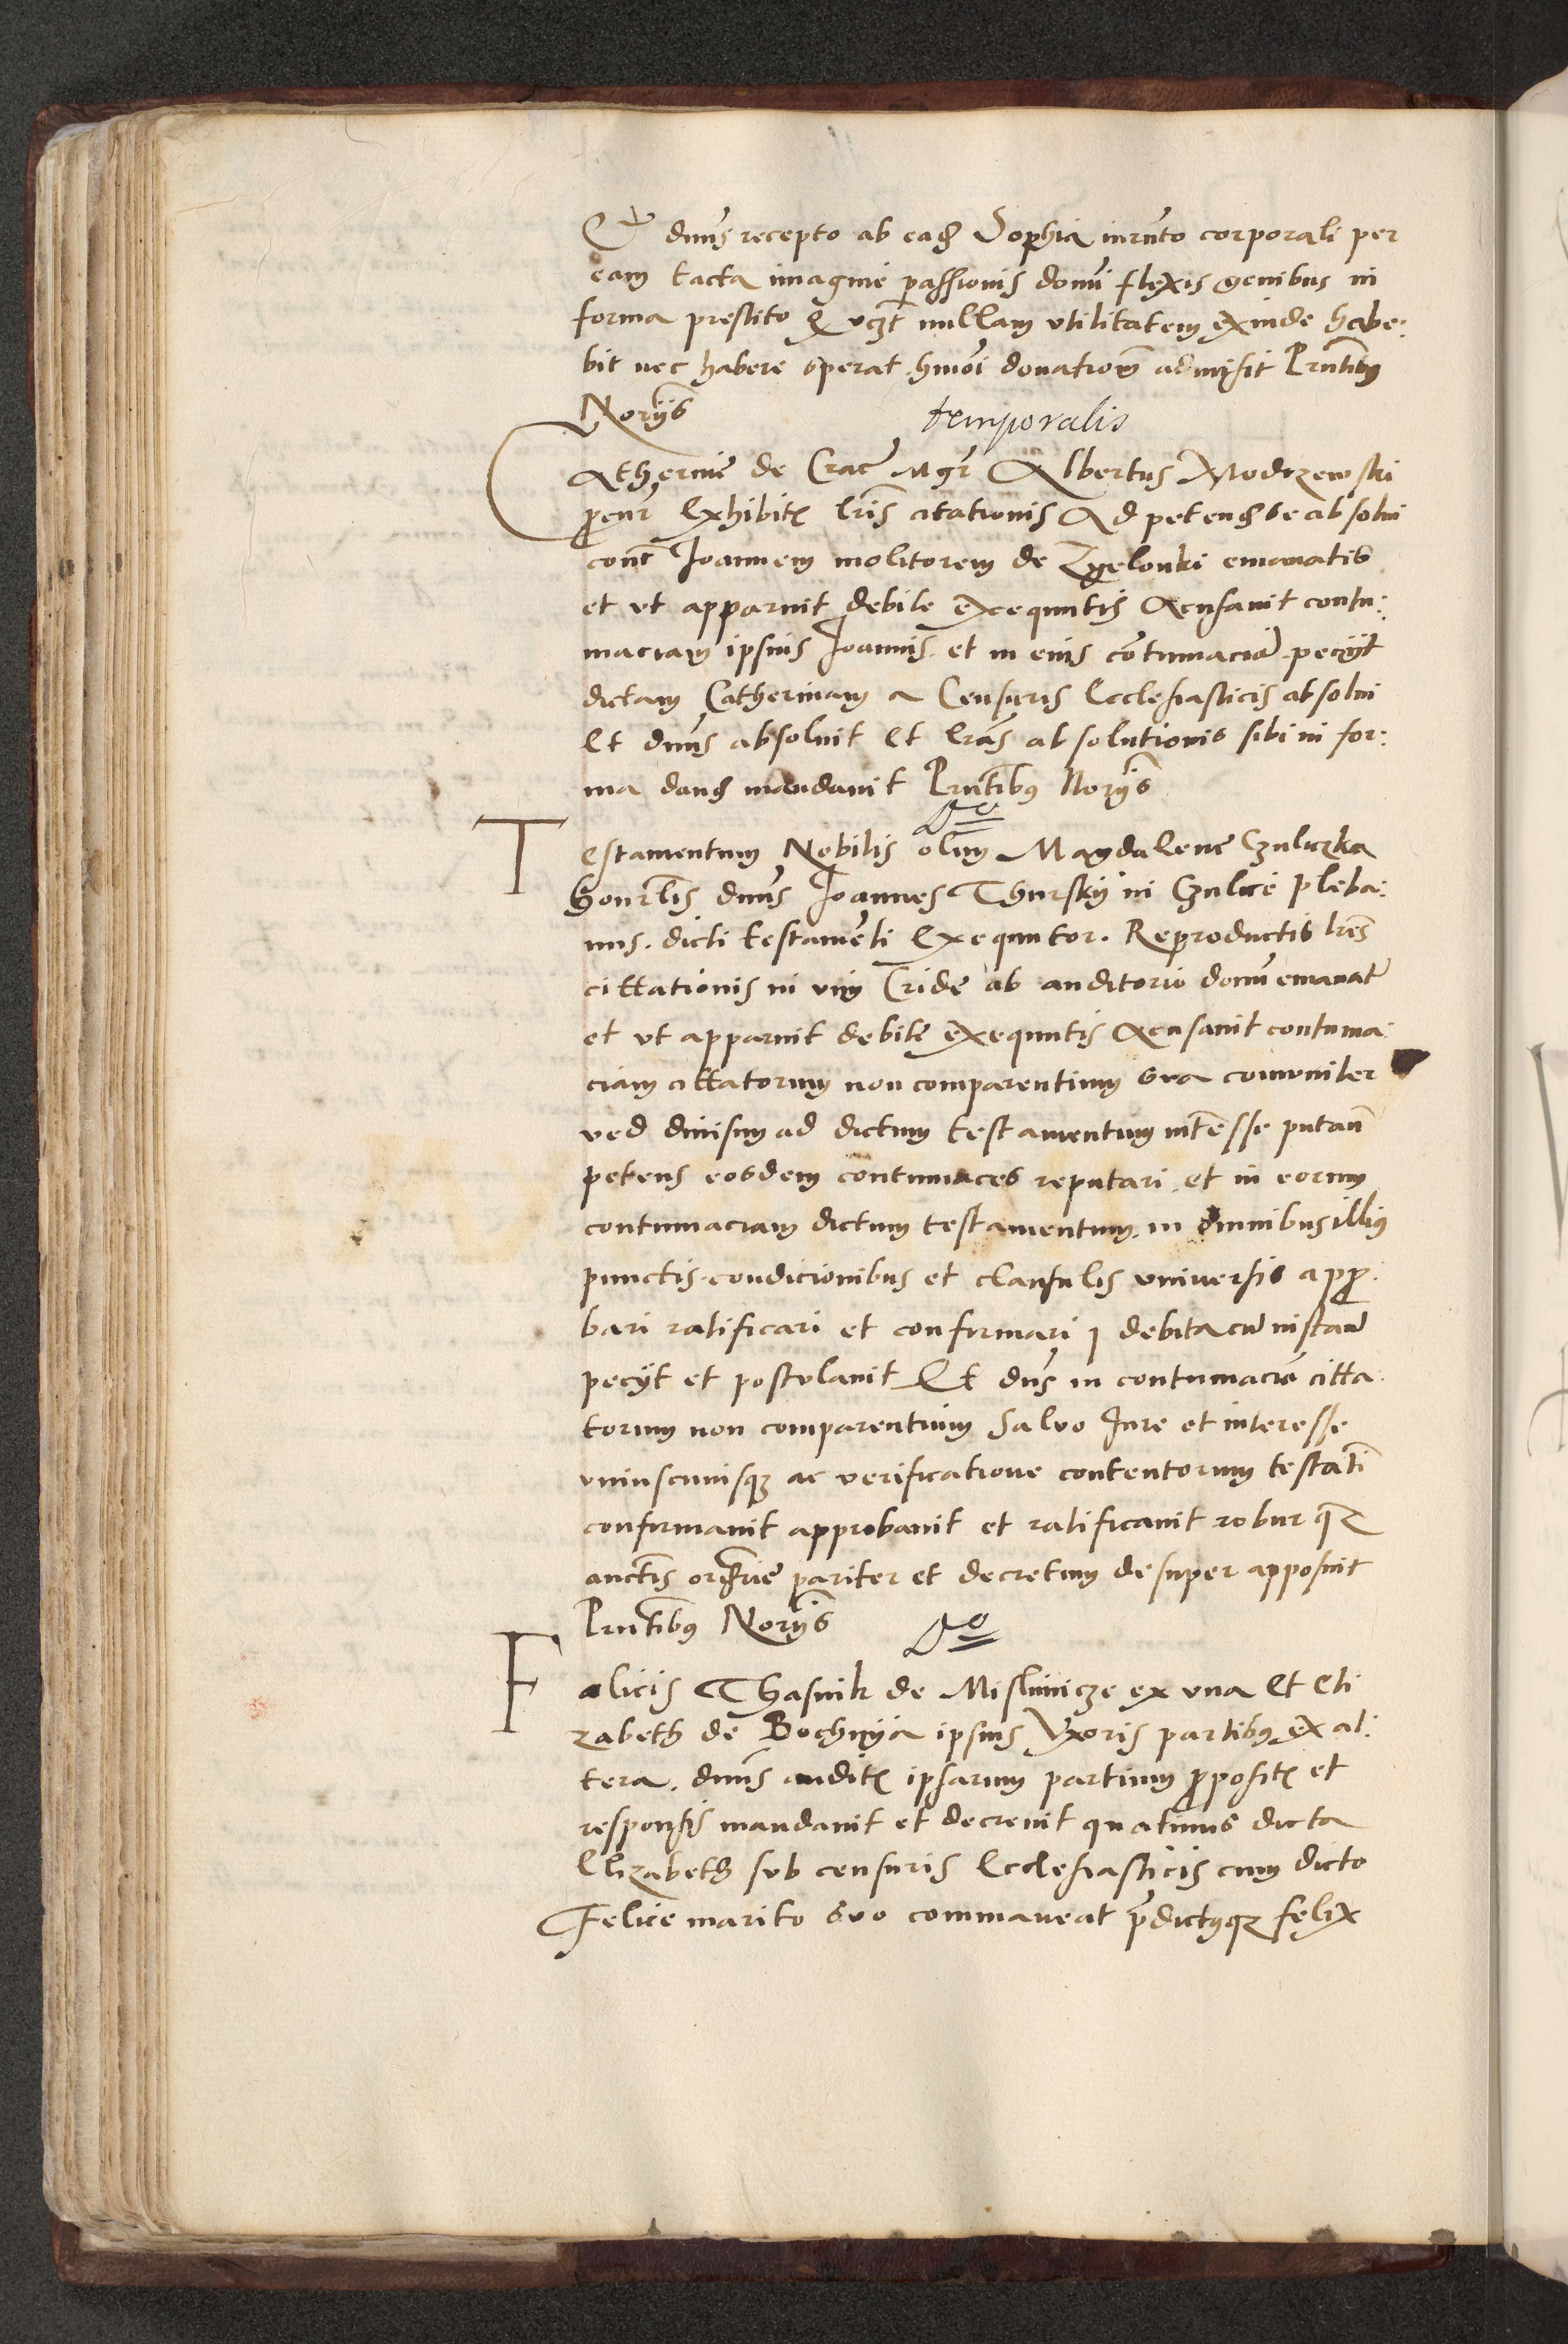 Et dnus recepto ab eadem Sophia iurnto corporali per
eam tacta imagine passionis domi flexis genibus in
forma prestito q vczt nullam vtilitatem exinde habe:
bit nec habere sperat hmoi donationem admisit Prntibus
Norijs
temporalis
Catherine de Crac Mgr Albertus Modrzewski
pcur Exhibitis lris citationis Ad petendum se absolui
cont Joannem molitorem de Zyelonki emanatis
et vt apparuit debite exequutis Acusauit contu:
maciam ipsius Joannis et in eius contumaciam peciit
dictam Catherinam a Censuris Ecclesiasticis absolui
Et dnus absoluit Et lras absolutionis sibi in for:
ma dand mandauit Prntibus Norijs
Do
Testamentum Nobilis olim Magdalene Czuliczka
honrlis dnus Joannes Thurskij in Czulice pleba:
nus dicti testamenti Exequutor. Reproductis lris
cittationis in vim Cride ab auditorio domi emanat
et vt apparuit debite exequutis Acusauit contuma:
ciam cittatorum non comparentium sua comuniter
vel diuisim ad dictum testamentum intesse putan
petens eosdem contumaces reputari et in eorum
contumaciam dictum testamentum in omnibus illius
punctis condicionibus et clausulis vniuersis appro:
bari ratificari et confirmari debita cum instan
peciit et postulauit Et dns in contumaciam citta:
torum non comparentium Saluo Jure et interesse
vniuscuiusque ac verificatione contentorum testati
confirmauit approbauit et ratificauit robur que
auctis ordrie pariter et decretum desuper apposuit
Prntibus Norijs
Do
Felicis Thasnik de Mislimicze ex vna Et Eli
zabeth de Bochnija ipsius Vxoris partibus ex al:
tera. dnus auditis ipsarum partium propositis et
responsis mandauit et decreuit quatinus dicta
Elizabeth sub censuris Ecclesiasticis cum dicto
Felice marito suo commaneat predictusque felix